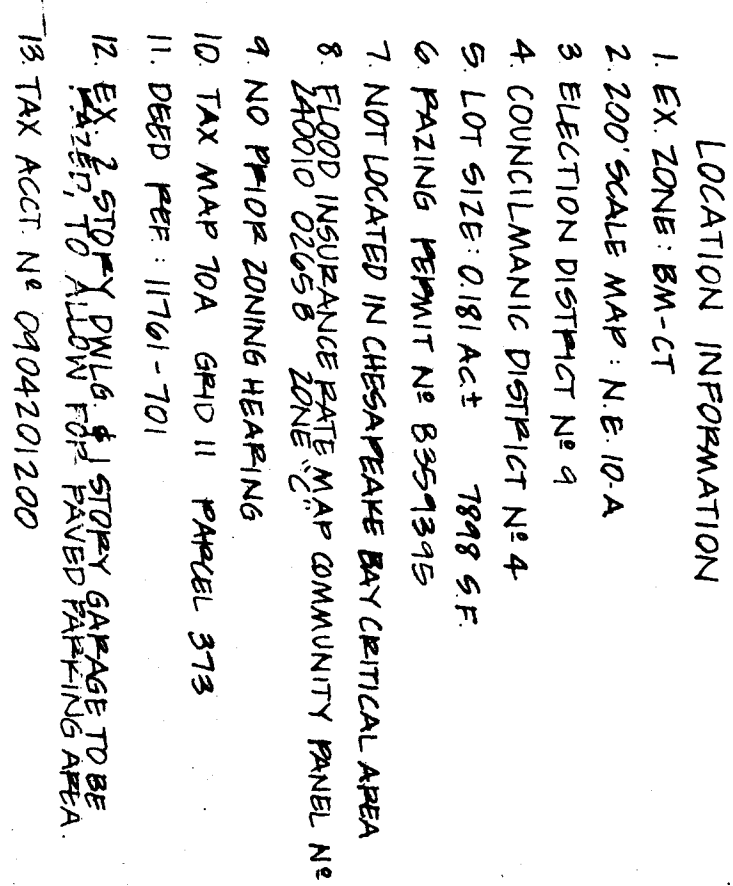 LOCATION INFORMATION
1. EX. ZONE: BM-CT
2. 200' SCALE MAP: N.E. 10-A
3 ELECTION DISTRICT Nº 9
4. COUNCILMANIC DISTRICT Nº 4
5. LOT SIZE: 0.181 AC.± 7898 S.F.
6 RAZING PERMIT Nº B359395
7. NOT LOCATED IN CHESAPEAKE BAY CRITICAL AREA
8. FLOOD INSURANCE RATE MAP COMMUNITY PANEL Nº
240010 0265B ZONE "C"
9. NO PRIOR ZONING HEARING
10. TAX MAP 70A GRID 11 PARCEL 373
11. DEED REF.: 11761-701
12. EX. 2 STORY DWLG & 1 STORY GARAGE TO BE
RAZED, TO ALLOW FOR PAVED PARKING AREA.
13. TAX ACCT. Nº 0904201200